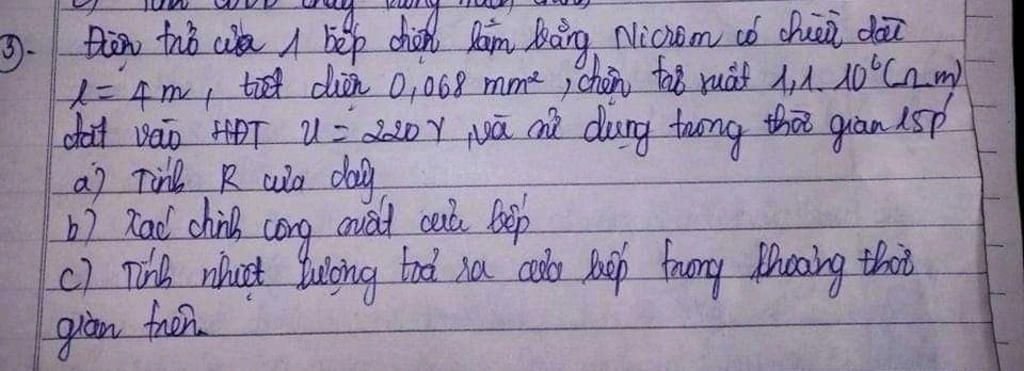 3. Điện trở của 1 bếp điện làm bằng Nicrom có chiều dài
l = 4m, tiết diện 0,068 mm², điện trở suất 1,1.10⁶(Ω.m)
đặt vào HĐT U = 220V, và sử dụng trong thời gian 15p'
a) Tính R của dây
b) Xác định công suất của bếp
c) Tính nhiệt lượng toả ra của bếp trong khoảng thời
gian trên.